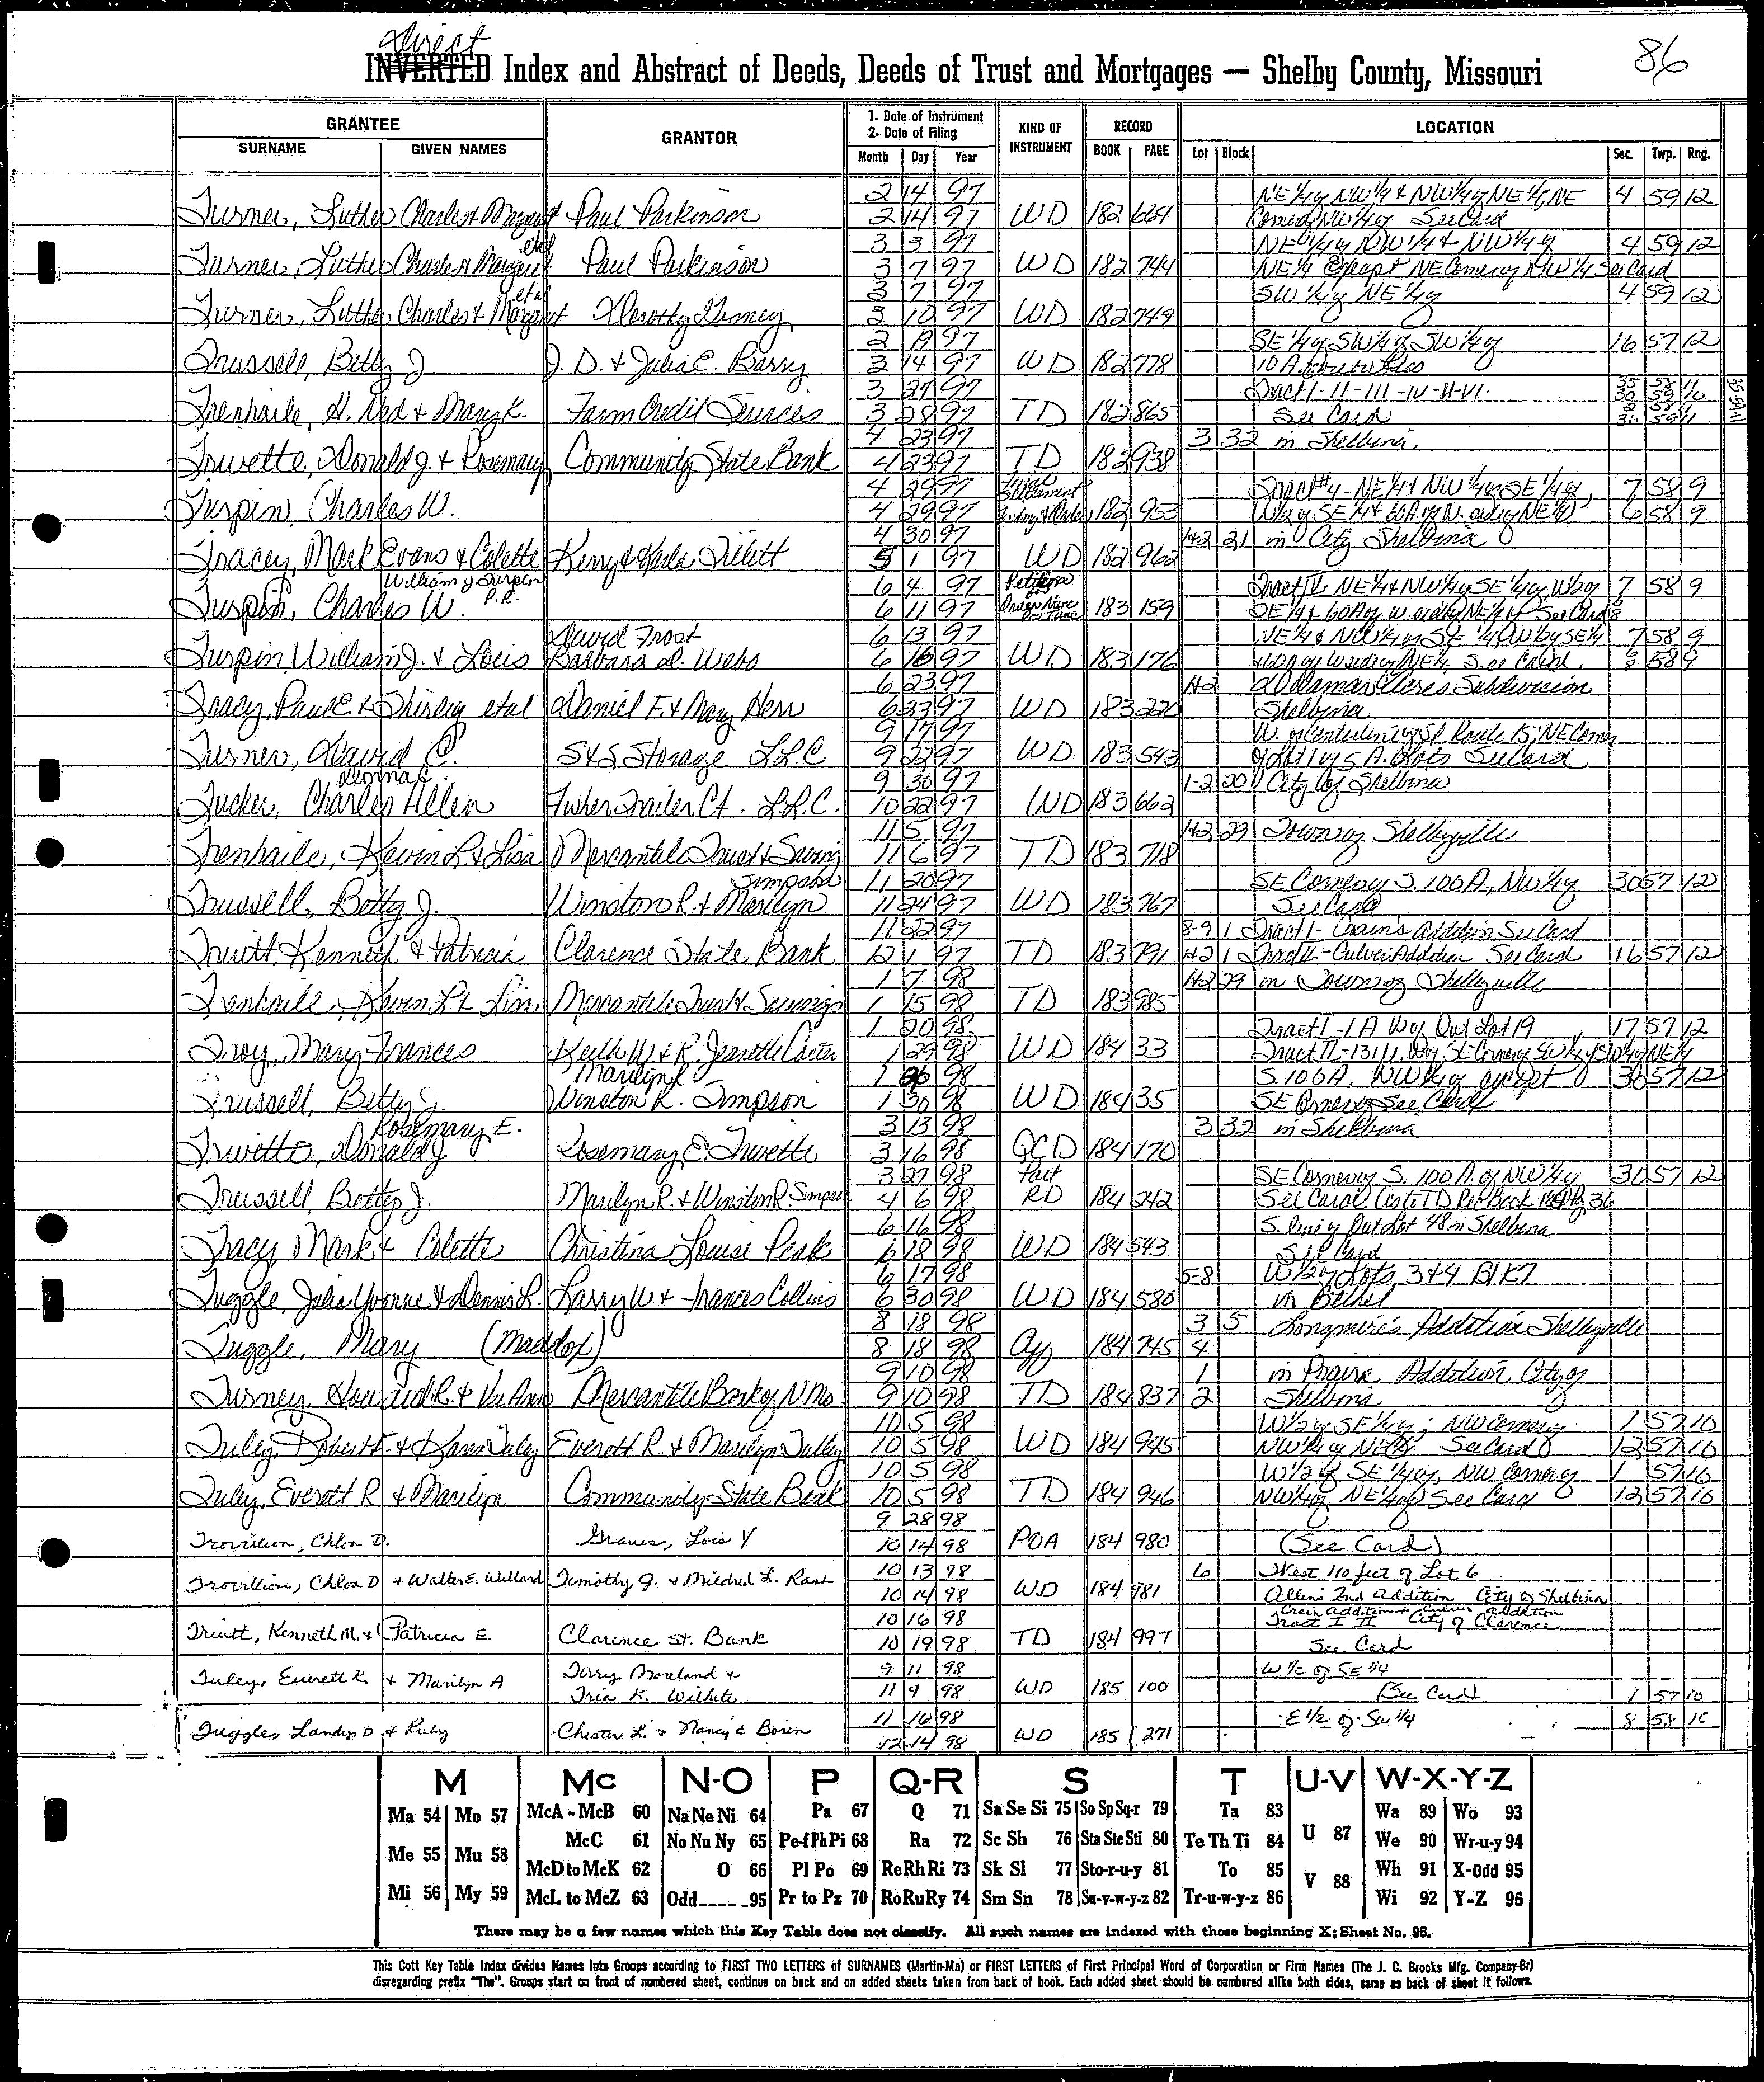 Direct
86
INVERTED Index and Abstract of Deeds, Deeds of Trust and Mortgages — Shelby County, Missouri
GRANTEE
SURNAME GIVEN NAMES GRANTOR
1. Date of Instrument
2. Date of Filing
Month Day Year
KIND OF INSTRUMENT
RECORD
BOOK PAGE
LOCATION
Lot Block Sec. Twp. Rng.
2 14 97 NE 1/4 of NW 1/4 & NW 1/4 of NE 1/4, NE 4 59 12
Turner, Luther Charles & Margaret Paul Parkinson 2 14 97 WD 182 664 Corner of NW 1/4 of See Card
etal 3 3 97 NE 1/4 of NW 1/4 & NW 1/4 of 4 59 12
Turner, Luther Charles & Margaret Paul Parkinson 3 7 97 WD 182 744 NE 1/4 Except NE Corner of NW 1/4 See Card
etal 3 7 97 SW 1/4 of NE 1/4 of 4 59 12
Turner, Luther Charles & Margaret Dorothy 3 10 97 WD 182 749
2 19 97 SE 1/4 of SW 1/4 of SW 1/4 of 16 57 12
Trussell, Betty J. J. D. & Julia E. Barry 3 14 97 WD 182 778 10 A. more or less
3 27 97 Tract I-II-III-IV-V-VI. 35 58 11
Trenhaile, H. Ned & Mary K. Farm Credit Services 3 28 97 TD 182 865 See Card
4 23 97 3 32 in Shelbina
Triwetto, Donald J. & Rosemary Community State Bank 4 23 97 TD 182 938
4 29 97 Final Settlement Tract #4 - NE 1/4 & NW 1/4 of SE 1/4 of, 7 58 9
Turpin, Charles W. 4 29 97 182 953 W 1/2 of SE 1/4 & 60 A. of W. side of NE 1/4 6 58 9
4 30 97 1+2 21 in City Shelbina
Tracey, Mark Evans & Colette Kerry & Karla Tillett 5 1 97 WD 182 962
William J Turpin P.R. 6 4 97 Petition Tract IV NE 1/4 & NW 1/4 of SE 1/4 of, W 1/2 of 7 58 9
Turpin, Charles W. 6 11 97 Order Nunc Pro Tunc 183 159 SE 1/4 & 60A of W. side of NE 1/4 of See Card
David Frost 6 13 97 NE 1/4 & NW 1/4 of SE 1/4, W 1/2 of SE 1/4 7 58 9
Turpin William J. & Lois Barbara D. Webb 6 16 97 WD 183 176 & 60A of W side of NE 1/4, See Card 58 9
6 23 97 1+2 Subdivision
Tracy, Paul E. & Shirley etal Daniel F. & Mary Herr 6 23 97 WD 183 220 Shelbina
9 17 97 W. of Centerline of St Route 15; NE Corner
Turner, David C. S&S Storage L.L.C 9 22 97 WD 183 543 of Lot 1 of 5 A. Lots See Card
Donna C. 9 30 97 1-2 20 City of Shelbina
Tucker, Charles Allen Fisher Trailer Ct. L.L.C. 10 22 97 WD 183 662
11 5 97 1+2 29 Town of Shelbyville
Trenhaile, Kevin L & Lisa Mercantile Trust & Saving 11 6 97 TD 183 718
Simpson 11 20 97 SE Corner of S. 100 A., NW 1/4 of 30 57 12
Trussell, Betty J. Winston R. & Marilyn 11 24 97 WD 183 767 See Card
11 22 97 8-9 1 Tract I - Crain's Addition See Card
Truitt, Kenneth & Patricia Clarence State Bank 12 1 97 TD 183 791 1+2 1 Tract II - Culver Addition See Card 16 57 12
1 7 98 1+2 29 in Town of Shelbyville
Trenhaile, Kevin L & Lisa Mercantile Trust & Savings 1 15 98 TD 183 985
1 20 98 Tract I - 1 A W of Out Lot 19 17 57 12
Troy, Mary Frances Keith W & R. Jeanette Carter 1 29 98 WD 184 33
Marilyn R 1 26 98 S. 100 A. NW 1/4 of except 30 57 12
Trussell, Betty J. Winston R. Simpson 1 30 98 WD 184 35 SE Corner of See Card
Rosemary E. 3 13 98 3 32 in Shelbina
Triwetto, Donald J Rosemary E. Triwetto 3 16 98 QCD 184 170
3 27 98 Part SE Corner of S. 100 A. of NW 1/4 of 30 57 12
Trussell Betty J. Marilyn R. & Winston R. Simpson 4 6 98 RD 184 242 See Card as to TD Rec Book 184 Pg 36
6 16 98 S line of Out Lot 48 in Shelbina
Tracy, Mark & Colette Christina Louise Peak 6 18 98 WD 184 543 See Card
6 17 98 5-8 W 1/2 of Lots 3 & 4 Blk 7
Tuggle, Julia Yvonne & Dennis L. Larry W & Frances Collins 6 30 98 WD 184 580 in Bethel
8 18 98 3 5 Longmire's Addition Shelbyville
Tuggle, Mary (Maddox) 8 18 98 Aff 184 745 4
9 10 98 1 in Prairie Addition City of
Turney, Howard R. & Vu Ann Mercantile Bank of N Mo 9 10 98 TD 184 837 2 Shelbina
10 5 98 W 1/2 of SE 1/4 of; NW Corner of 1 57 10
Tuley, Robert F. & Karen Tuley Everett R. & Marilyn Tulley 10 5 98 WD 184 945 NW 1/4 of NE 1/4 See Card 12 57 10
10 5 98 W 1/2 of SE 1/4 of, NW Corner of 1 57 10
Tuley, Everett R & Marilyn Community State Bank 10 5 98 TD 184 946 NW 1/4 of NE 1/4 of See Card 12 57 10
9 28 98
Trovillion, Chloe D. Graves, Lois Y 10 14 98 POA 184 980 (See Card)
10 13 98 6 West 110 feet of Lot 6
Trovillion, Chloe D & Walter E. Willard Timothy J. & Mildred L. Rash 10 14 98 WD 184 981 Allen's 2nd Addition City of Shelbina
10 16 98 Crain Addition & Culver Addition
Tract I II City of Clarence
Truitt, Kenneth M. & Patricia E. Clarence St. Bank 10 19 98 TD 184 997 See Card
9 11 98 W 1/2 of SE 1/4
Tuley, Everett R. & Marilyn A Terry Moreland & Tria K. Wilhite 11 9 98 WD 185 100 (See Card) 1 57 10
11 16 98 E 1/2 of SW 1/4 8 58 10
Tuggle, Landys D & Ruby Chester L. & Nancy E Boren 12 14 98 WD 185 271
M Mc N-O P Q-R S T U-V W-X-Y-Z
Ma 54 Mo 57 McA - McB 60 Na Ne Ni 64 Pa 67 Q 71 Sa Se Si 75 So Sp Sq-r 79 Ta 83 Wa 89 Wo 93
Me 55 Mu 58 McC 61 No Nu Ny 65 Pe-f Ph Pi 68 Ra 72 Sc Sh 76 Sta Ste Sti 80 Te Th Ti 84 U 87 We 90 Wr-u-y 94
McD to McK 62 O 66 Pl Po 69 Re Rh Ri 73 Sk Sl 77 Sto-r-u-y 81 To 85 V 88 Wh 91 X-Odd 95
Mi 56 My 59 McL to McZ 63 Odd 95 Pr to Pz 70 Ro Ru Ry 74 Sm Sn 78 Su-v-w-y-z 82 Tr-u-w-y-z 86 Wi 92 Y-Z 96
There may be a few names which this Key Table does not classify. All such names are indexed with those beginning X; Sheet No. 95.
This Cott Key Table Index divides Names Into Groups according to FIRST TWO LETTERS of SURNAMES (Martin-Ma) or FIRST LETTERS of First Principal Word of Corporation or Firm Names (The J. C. Brooks Mfg. Company-Br)
disregarding prefix "The". Groups start on front of numbered sheet, continue on back and on added sheets taken from back of book. Each added sheet should be numbered alike both sides, same as back of sheet it follows.